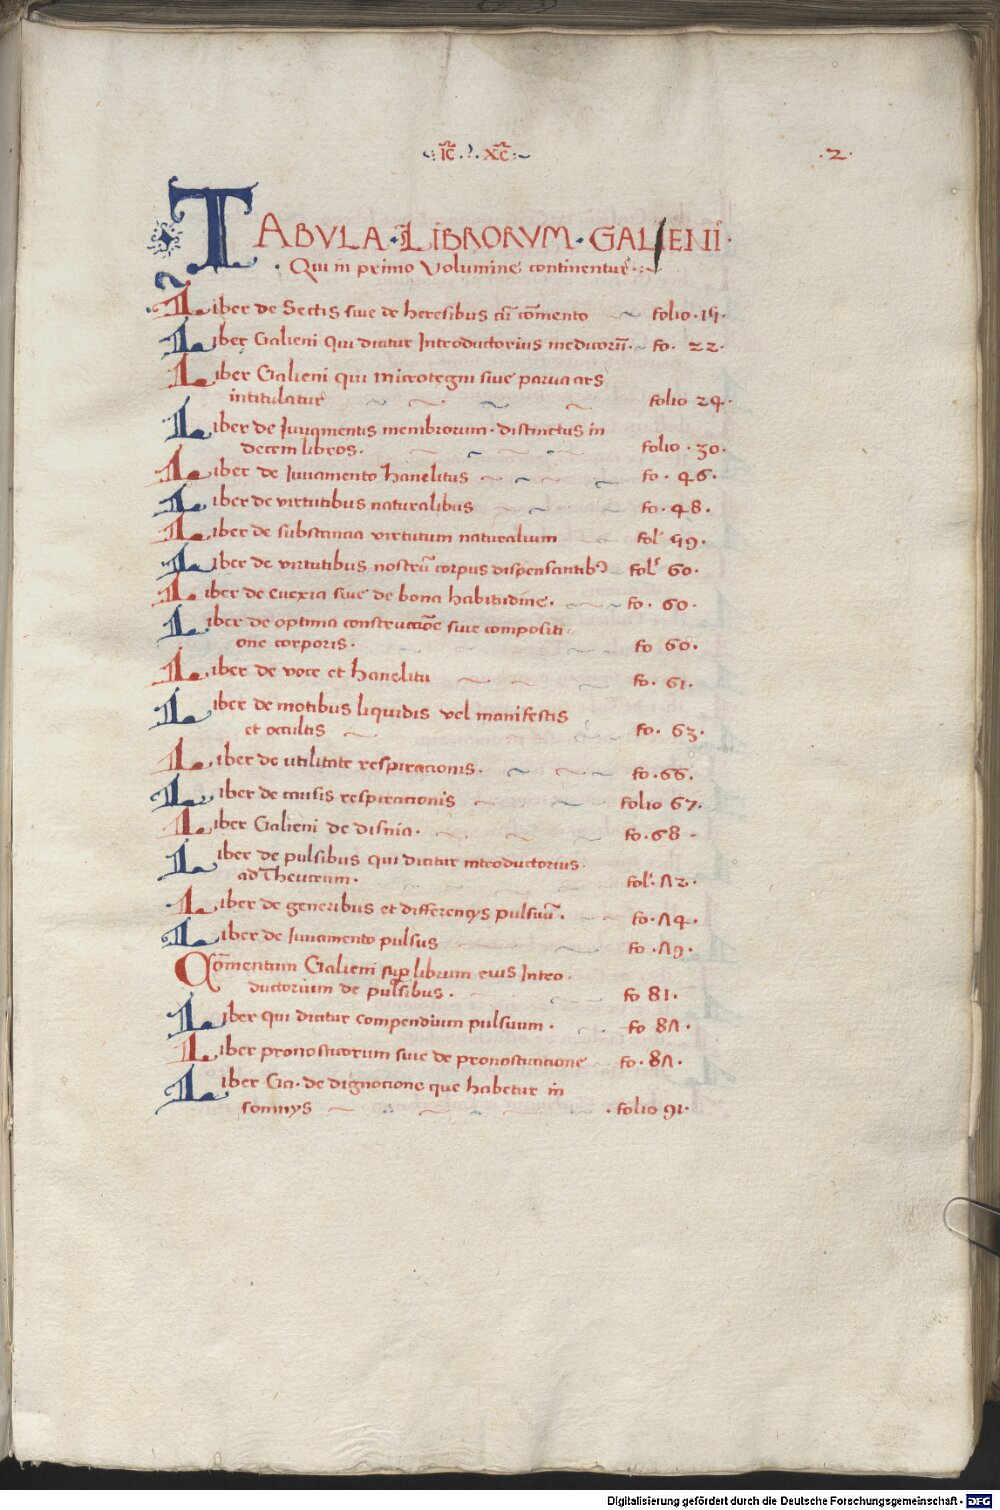 ·Ic̄·.·Xc̄·
·2·
TABVLA·LIBRORVM·GALIENI·
·Qui in primo Volumine continentur·
Liber de Sectis siue de heresibus cū cōmento folio·15·
Liber Galieni Qui dicitur Introductorius medicorū· fo· 22·
Liber Galieni qui microtegni siue parua ars
intitulatur folio 24·
Liber de Iuuamentis membrorum· distinctus in
decem libros· folio·30·
Liber de Iuuamento hanelitus fo· 46·
Liber de virtutibus naturalibus fo·48·
Liber de substancia virtutum naturalium fol' 59·
Liber de virtutibus nostrū corpus dispensantibꝰ fol' 60·
Liber de euexia siue de bona habitudine· fo· 60·
Liber de optima construccōe siue compositi
one corporis· fo 60·
Liber de voce et hanelitu fo· 61·
Liber de motibus liquidis vel manifestis
et occultis fo· 63·
Liber de utilitate respiracionis· fo·66·
Liber de causis respiracionis folio 67·
Liber Galieni de disnia· fo·68·
Liber de pulsibus qui dicitur introductorius·
ad Theucrum· fol'·72·
Liber de generibus et differencijs pulsuū· fo·74·
Liber de Iuuamento pulsus fo·79·
Cōmentum Galieni sup librum eius Intro
ductorium de pulsibus· fo 81·
Liber qui dicitur compendium pulsuum· fo 87·
Liber pronosticorum siue de pronosticatione fo·87·
Liber Ga· de dignocione que habetur in
somnijs ·folio 91·
Digitalisierung gefördert durch die Deutsche Forschungsgemeinschaft - DFG